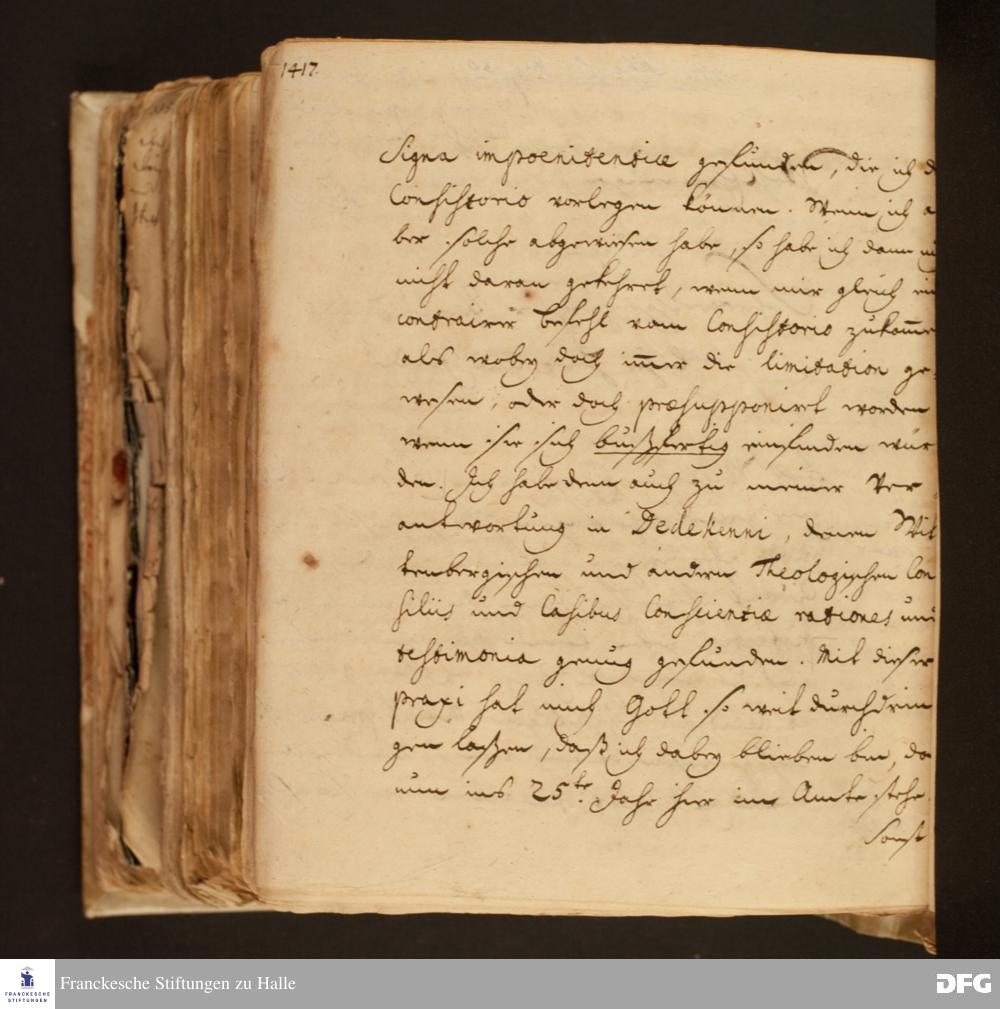 1417.
Signa impoenitentiæ gefunden, die ich d
Consistorio vorlegen können. Wenn ich a
ber solche abgewiesen habe, so habe ich dann
nicht daran gekehret, wenn mir gleich ein
contrairer befehl vom Consistorio zukom̅e
als wobey doch im̅er die limitation ge-
wesen, oder doch præsupponiret worden
wenn sie sich bußfertig einfinden wür
den. Ich habe denn auch zu meiner Ver
antwortung in Dedekenni, denen Wit
tenbergischen und andern Theologischen Con
siliis und Casibus Conscientiæ rationes und
testimonia genug gefunden. Mit dieser
praxi hat mich Gott so weit durchdrin
gen laßen, daß ich dabey blieben bin, da
nun ins 25te. Jahr hier im Amte stehe.
Sonst
FRANCKESCHE
STIFTUNGEN
Franckesche Stiftungen zu Halle
DFG